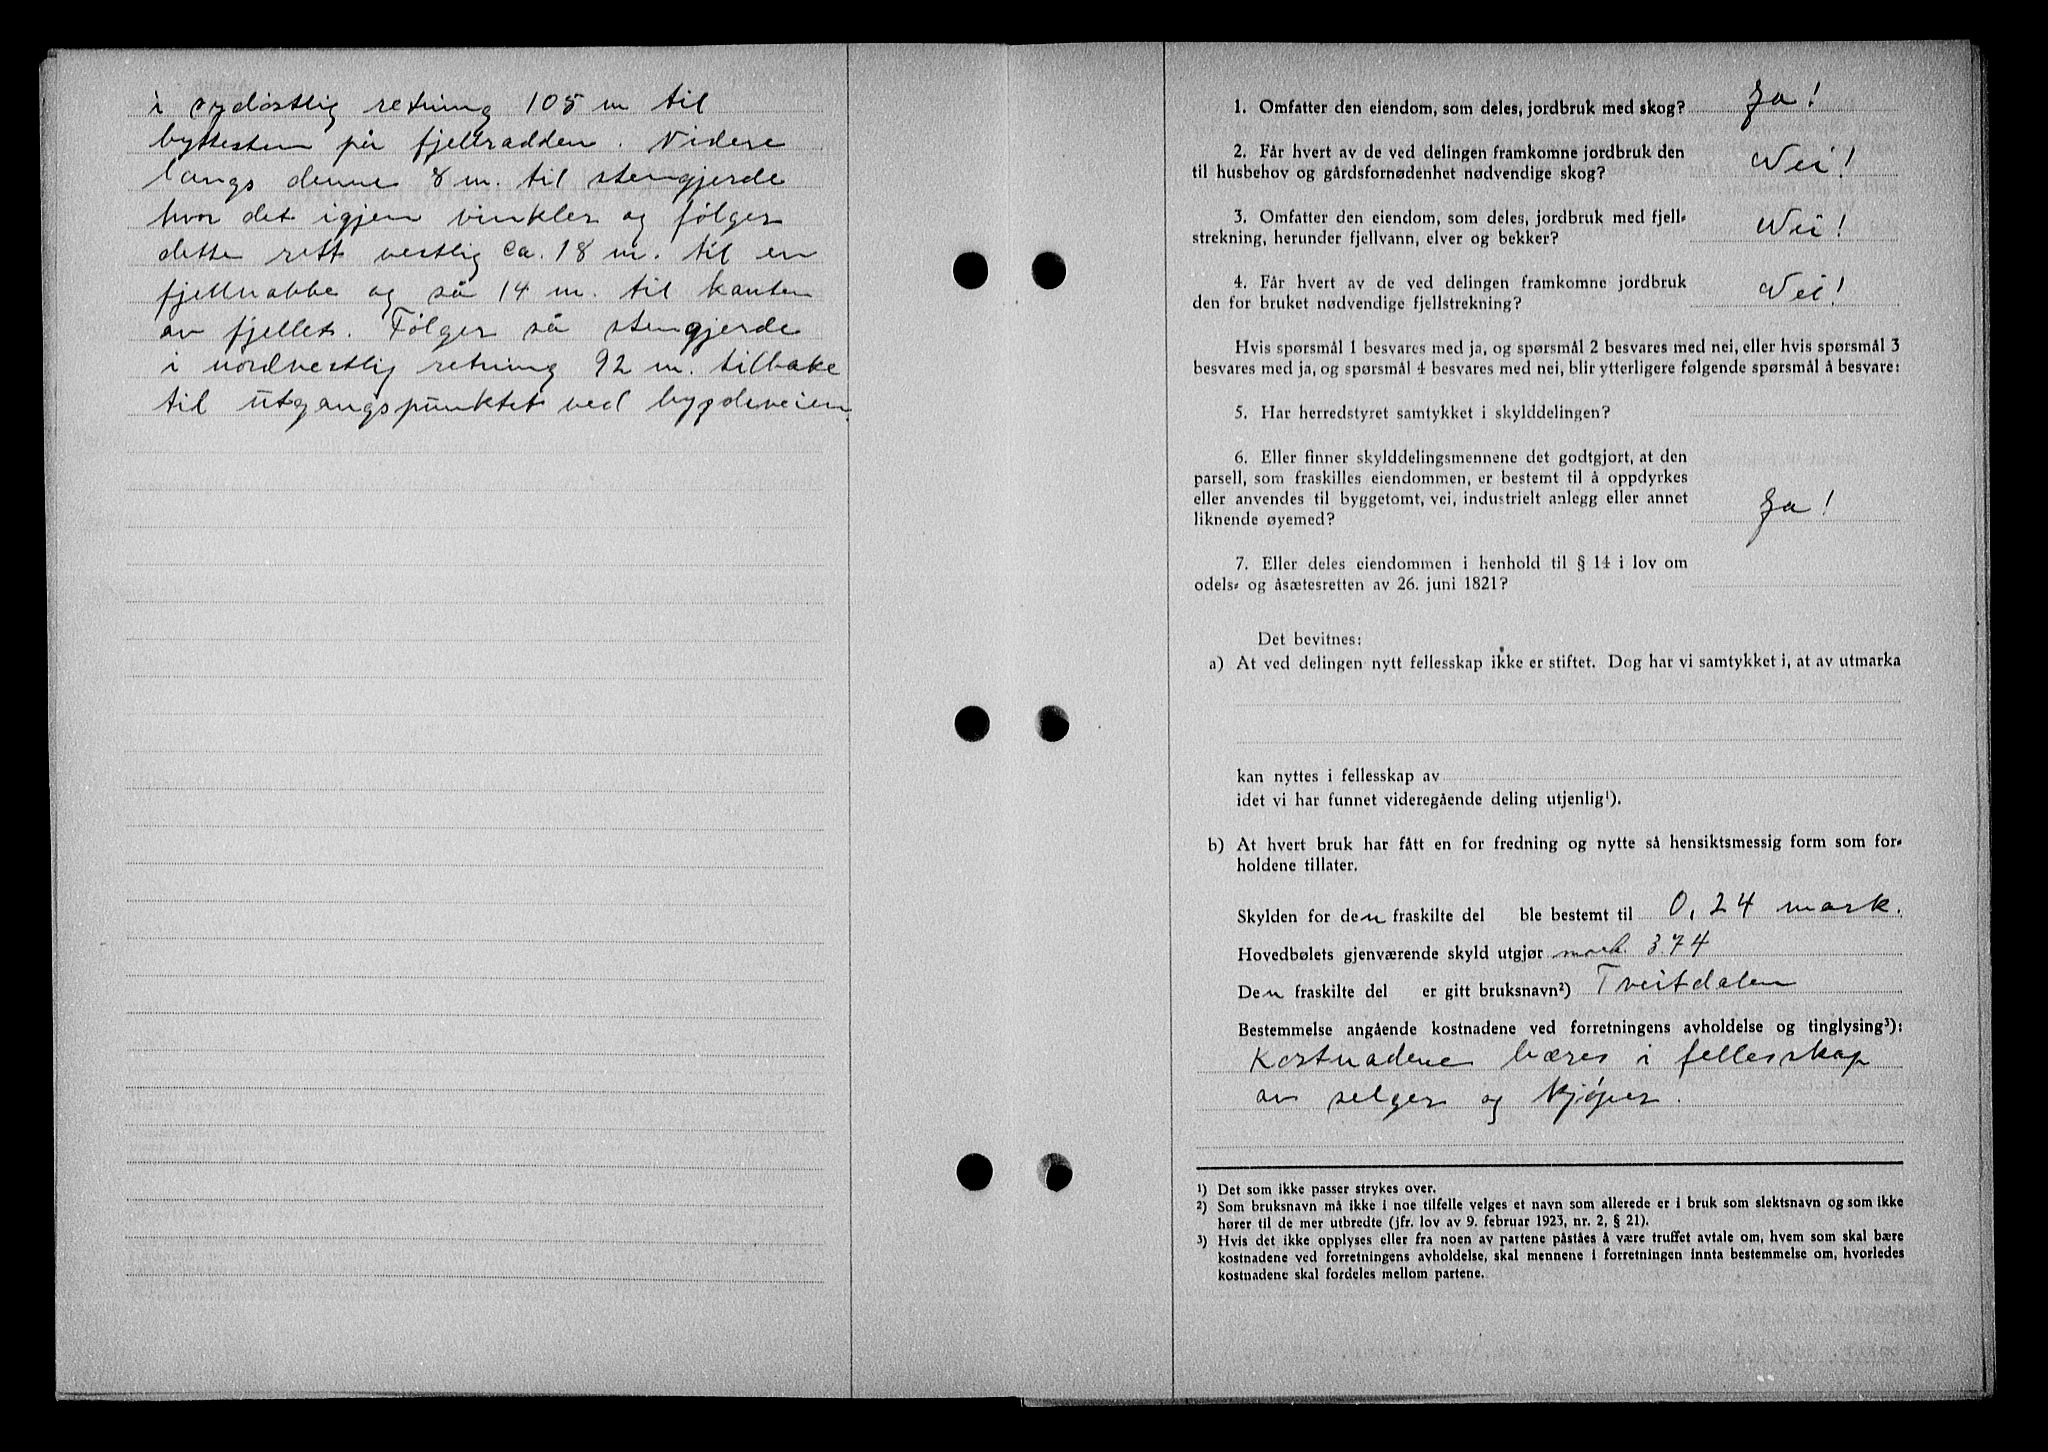 i sydøstlig retning 105 m til
byttesten på fjellradden. Videre
langs denne 8 m. til stengjerde
hvor det igjen vinkler og følger
dette rett vestlig ca. 18 m. til en
fjellnabbe og så 14 m. til kanten
av fjellet. Følger så stengjerde
i nordvestlig retning 92 m. tilbake
til utgangspunktet ved bygdeveien.
1. Omfatter den eiendom, som deles, jordbruk med skog? Ja!
2. Får hvert av de ved delingen framkomne jordbruk den
til husbehov og gårdsfornødenhet nødvendige skog? Nei!
3. Omfatter den eiendom, som deles, jordbruk med fjell-
strekning, herunder fjellvann, elver og bekker? Nei!
4. Får hvert av de ved delingen framkomne jordbruk
den for bruket nødvendige fjellstrekning? Nei!
Hvis spørsmål 1 besvares med ja, og spørsmål 2 besvares med nei, eller hvis spørsmål 3
besvares med ja, og spørsmål 4 besvares med nei, blir ytterligere følgende spørsmål å besvare:
5. Har herredstyret samtykket i skylddelingen?
6. Eller finner skylddelingsmennene det godtgjort, at den
parsell, som fraskilles eiendommen, er bestemt til å oppdyrkes
eller anvendes til byggetomt, vei, industrielt anlegg eller annet
liknende øyemed? Ja!
7. Eller deles eiendommen i henhold til § 14 i lov om
odels- og åsætesretten av 26. juni 1821?
Det bevitnes:
a) At ved delingen nytt fellesskap ikke er stiftet. Dog har vi samtykket i, at av utmarka
kan nyttes i fellesskap av
idet vi har funnet videregående deling utjenlig¹).
b) At hvert bruk har fått en for fredning og nytte så hensiktsmessig form som for-
holdene tillater.
Skylden for den fraskilte del ble bestemt til 0,24 mark.
Hovedbølets gjenværende skyld utgjør mark. 3.74
Den fraskilte del er gitt bruksnavn²) Tveitdalen
Bestemmelse angående kostnadene ved forretningens avholdelse og tinglysing³):
Kostnadene bæres i fellesskap
av selger og kjøper.
¹) Det som ikke passer strykes over.
²) Som bruksnavn må ikke i noe tilfelle velges et navn som allerede er i bruk som slektsnavn og som ikke
hører til de mer utbredte (jfr. lov av 9. februar 1923, nr. 2, § 21).
³) Hvis det ikke opplyses eller fra noen av partene påståes å være truffet avtale om, hvem som skal bære
kostnadene ved forretningens avholdelse, skal mennene i forretningen innta bestemmelse om, hvorledes
kostnadene skal fordeles mellom partene.